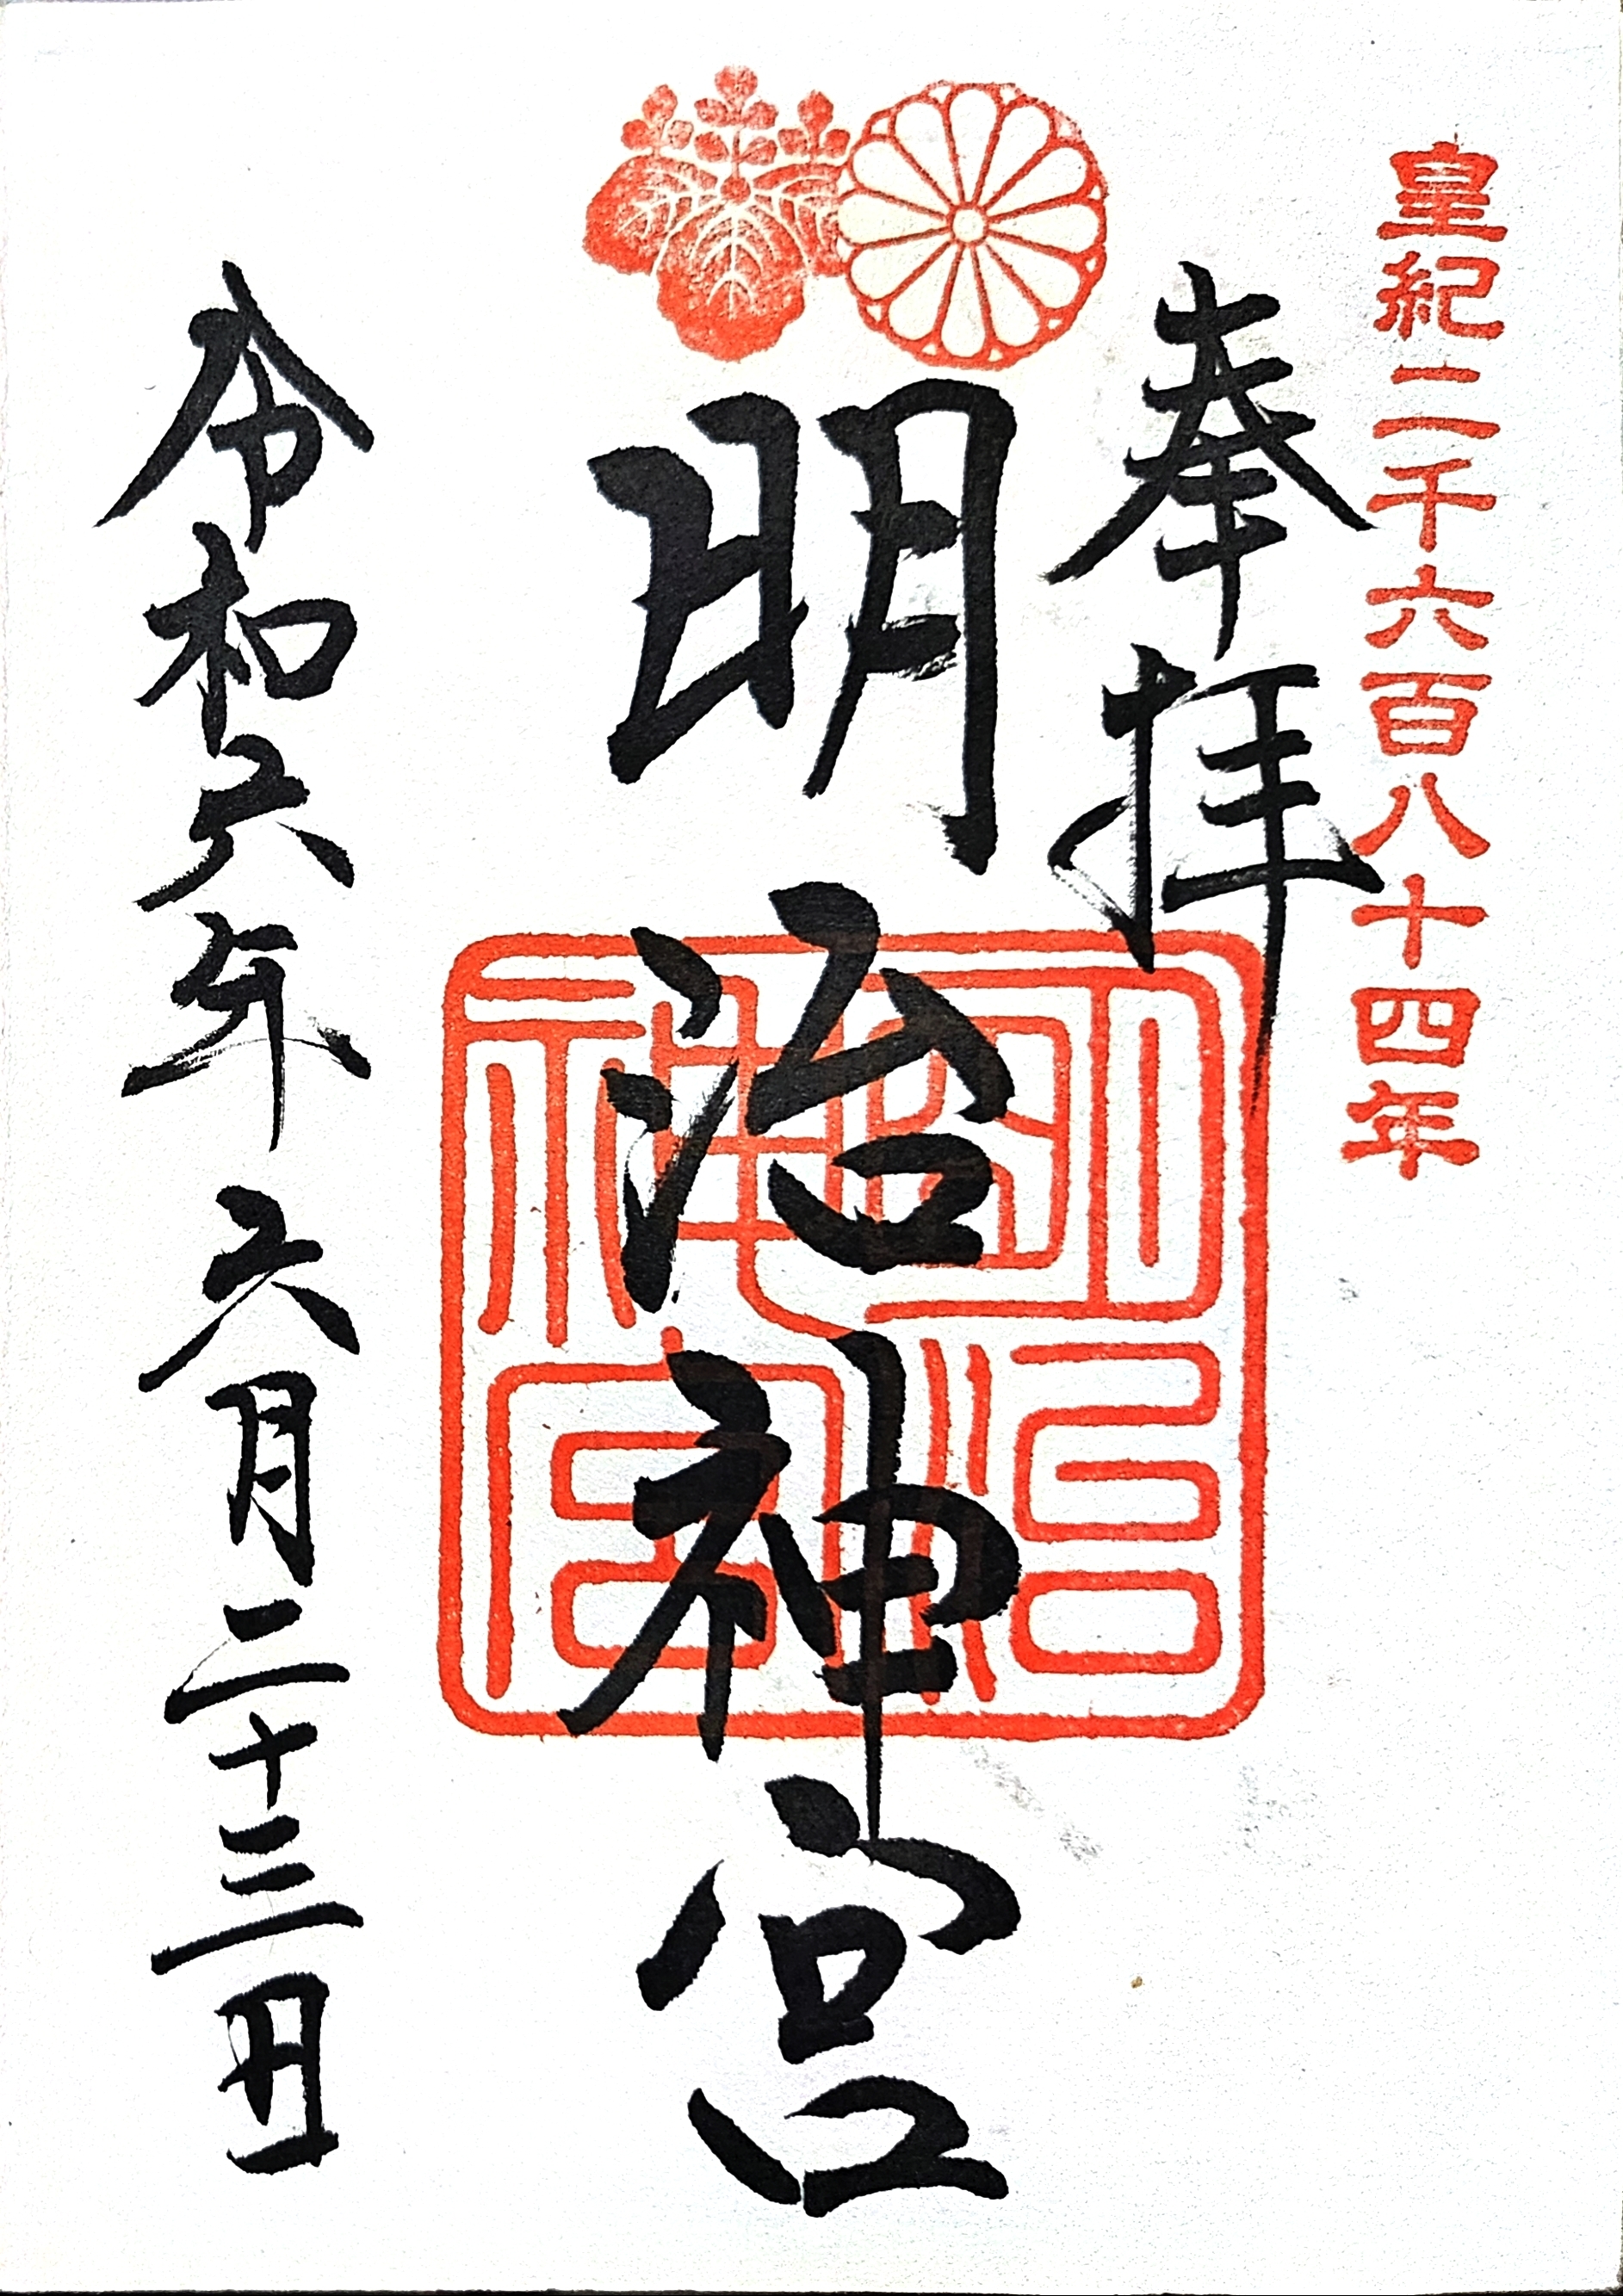 皇紀二千六百八十四年
奉拝
明治神宮
明治神宮
令和六年六月二十三日